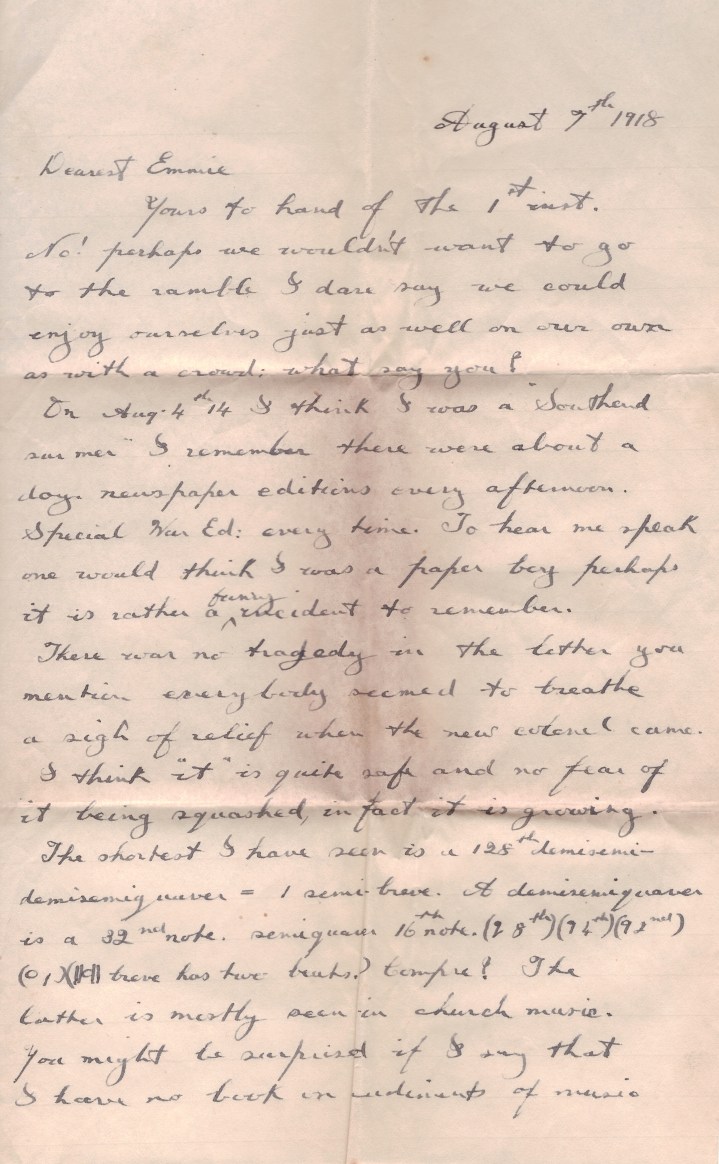 August 7th 1918
Dearest Emmie
Yours to hand of the 1st inst.
No! perhaps we wouldn't want to go
to the ramble I dare say we could
enjoy ourselves just as well on our own
as with a crowd: what say you?
On Aug. 4th 14 I think I was a "Southend
I remember there were about a
doz. newspaper editions every afternoon.
Special War Ed: every time. To hear me speak
one would think I was a paper boy perhaps
it is rather a funny incident to remember.
There was no tragedy in the letter you
mention everybody seemed to breathe
a sigh of relief when the new colonel came.
I think "it" is quite safe and no fear of
it being squashed, in fact it is growing.
The shortest I have seen is a 128th demisemi-
demisemiquaver = 1 semi-breve. A demisemiquaver
is a 32nd note. semiquaver 16th note. ( 8th) ( 4th) ( 2nd)
(o 1) (||o|| breve has two beats?) Compre? The
latter is mostly seen in church music.
You might be surprised if I say that
I have no book on rudiments of music